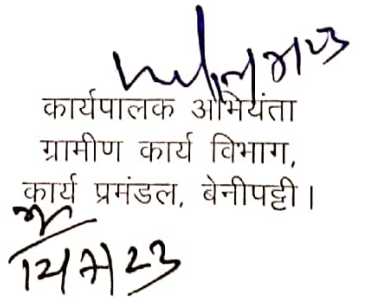 कार्यपालक अभियंता
ग्रामीण कार्य विभाग,
कार्य प्रमंडल, बेनीपट्टी।
12/7/23